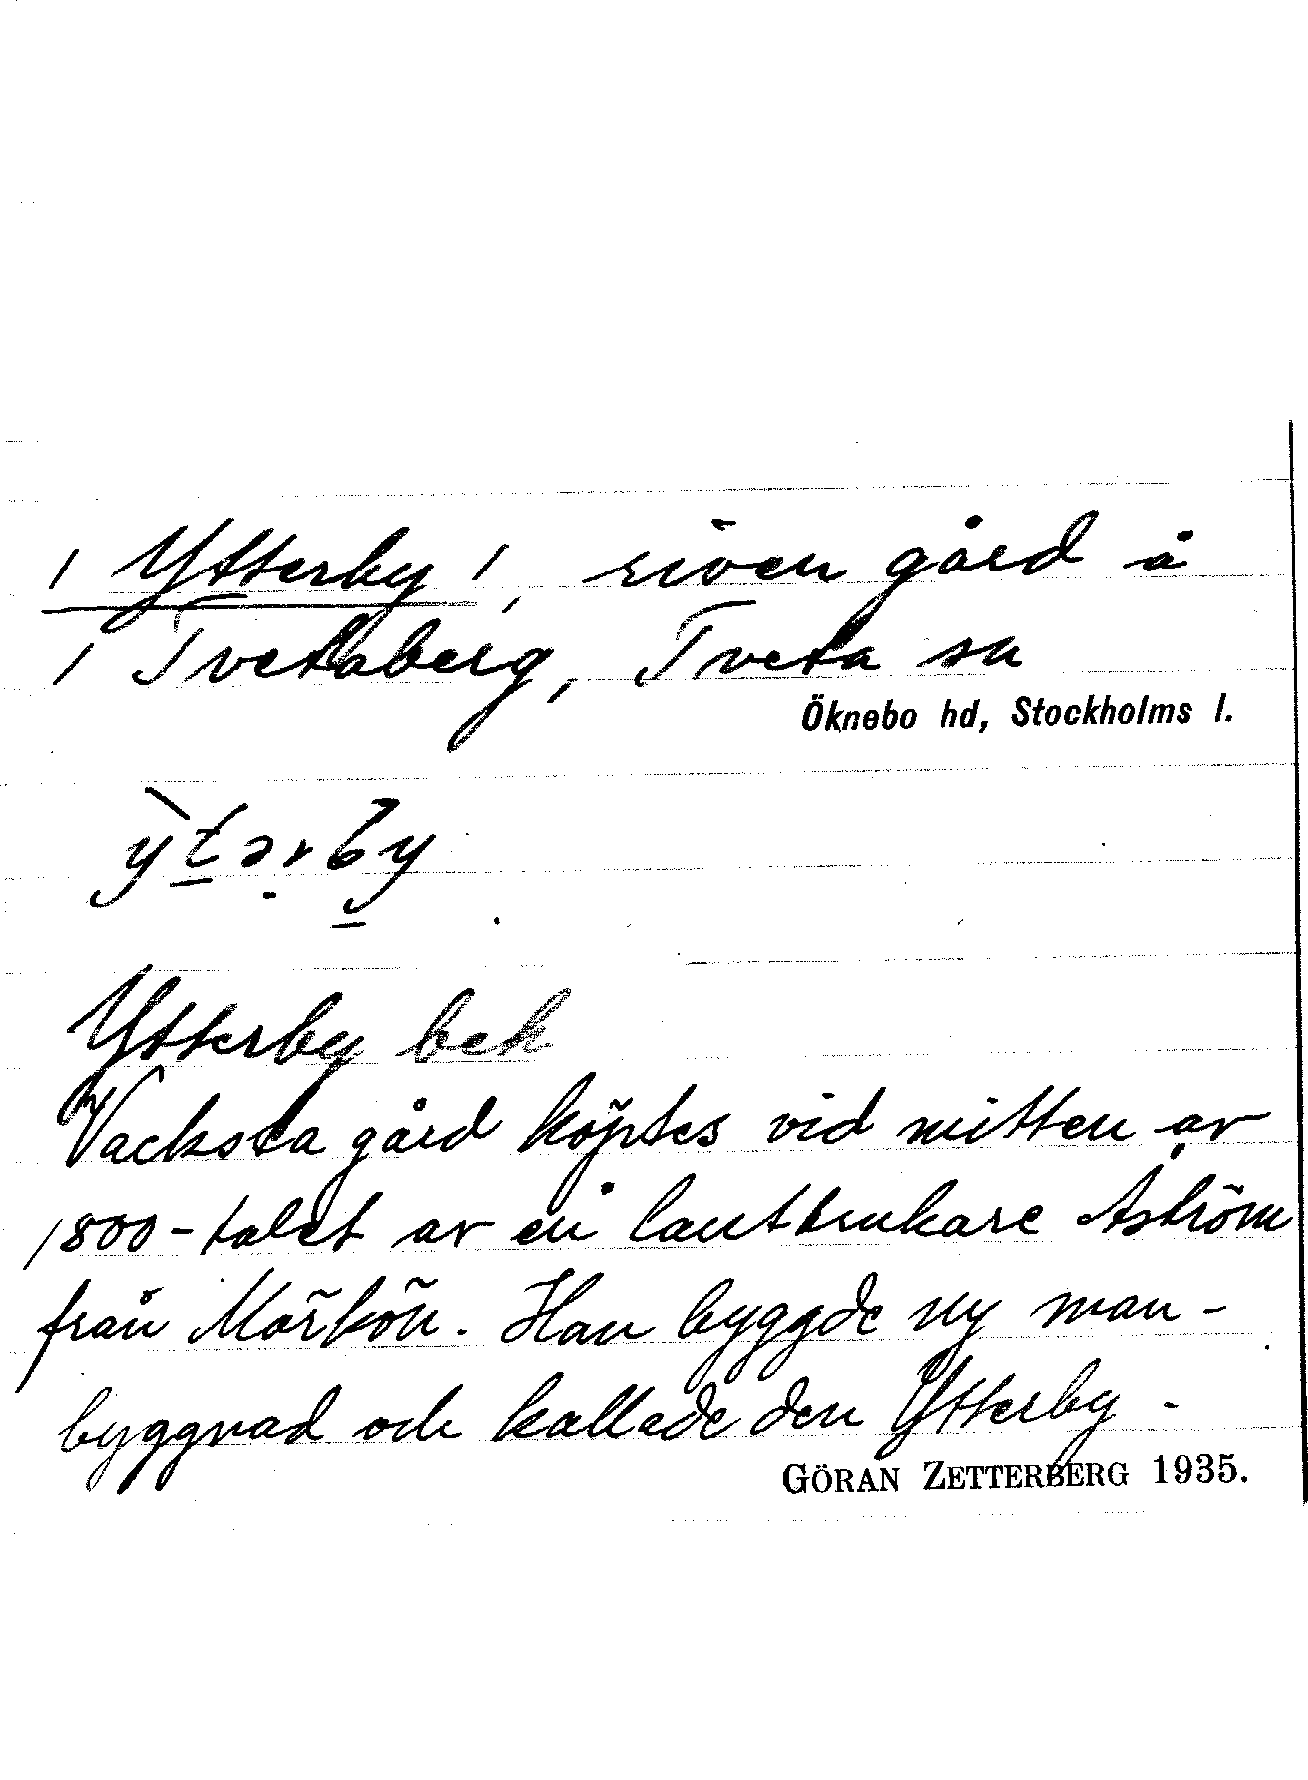 / Ytterby /, riven gård å
/ Tvetaberg, Tveta sn
Öknebo hd, Stockholms l.
ỳtərby
Ytterby bek
Vacksta gård köptes vid mitten av
1800-talet av en lantbrukare Åström
från Mörkön. Han byggde ny man-
byggnad och kallade den Ytterby.
GÖRAN ZETTERBERG 1935.